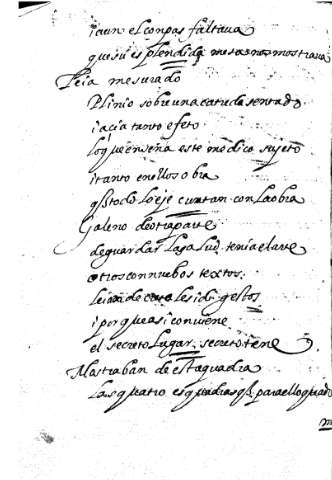 i aun el conpas faltava
que su esplendida mesa nos mostrava
Leia mesurado
Plinio sobre una catreda sentado
i acia tanto efeto
lo que enseña este modico sujeto
i tanto en ellos obra
q̃ todo lo eje cuntan con la obra
Galeno de otra parte
de guardar la salud tenia llave
otros con nuebos textos
leian de les i digestos
i por que asi conviene
el secreto lugar, secreto tiene
Mostraban de esta quadra
las quatro esquadras q̃ para ello